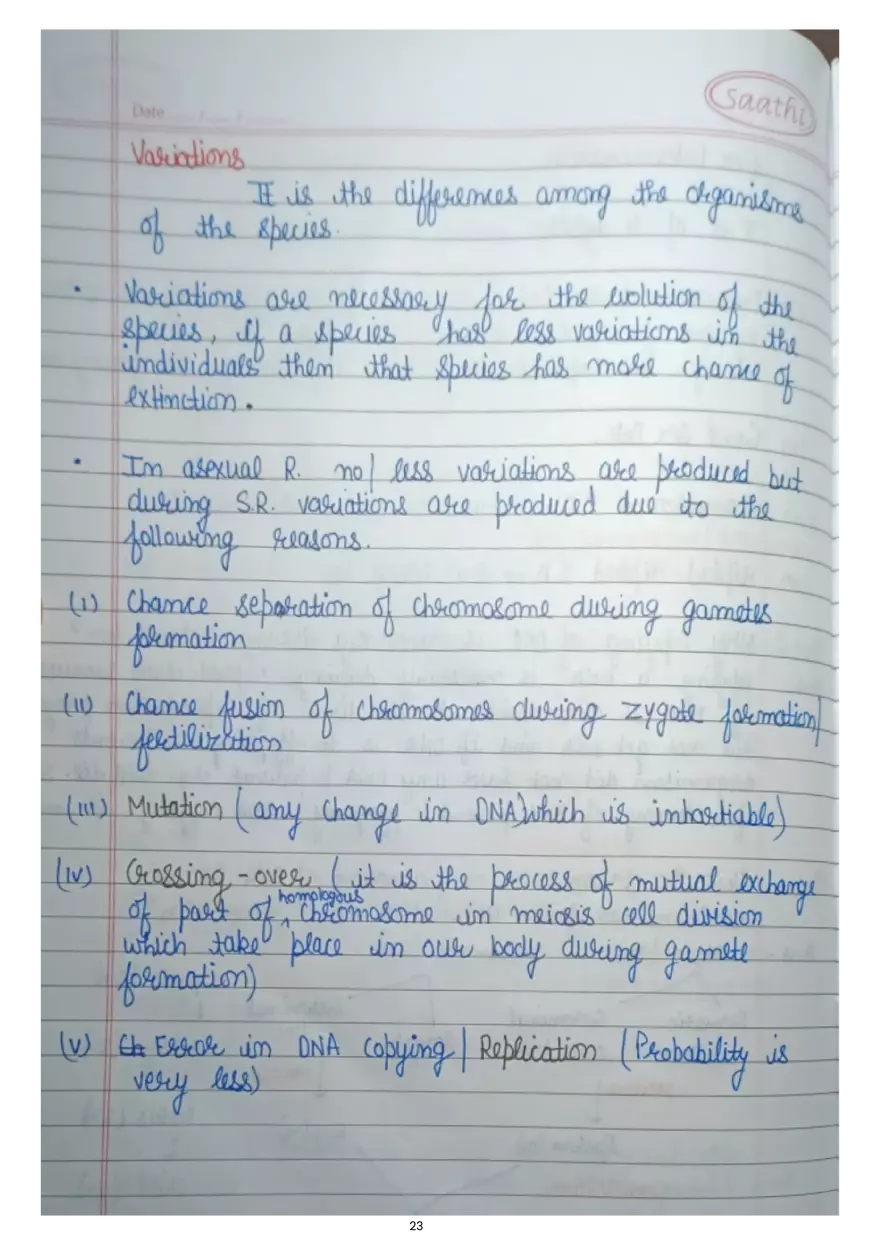 Saathi
Date
Variations
It is the differences among the organisms
of the species.
• Variations are necessary for the evolution of the
species, if a species has less variations in the
individuals then that species has more chance of
extinction.
• In asexual R. no/ less variations are produced but
during S.R. variations are produced due to the
following reasons.
(i) Chance separation of chromosome during gametes
formation
(ii) Chance fusion of chromosomes during zygote formation/
fertilization
(iii) Mutation (any change in DNA) which is inhertiable)
(iv) Crossing-over (it is the process of mutual exchange
homologous
of part of ^ chromosome in meiosis cell division
which take place in our body during gamete
formation)
(v) Error in DNA copying / Replication (Probability is
very less)
23